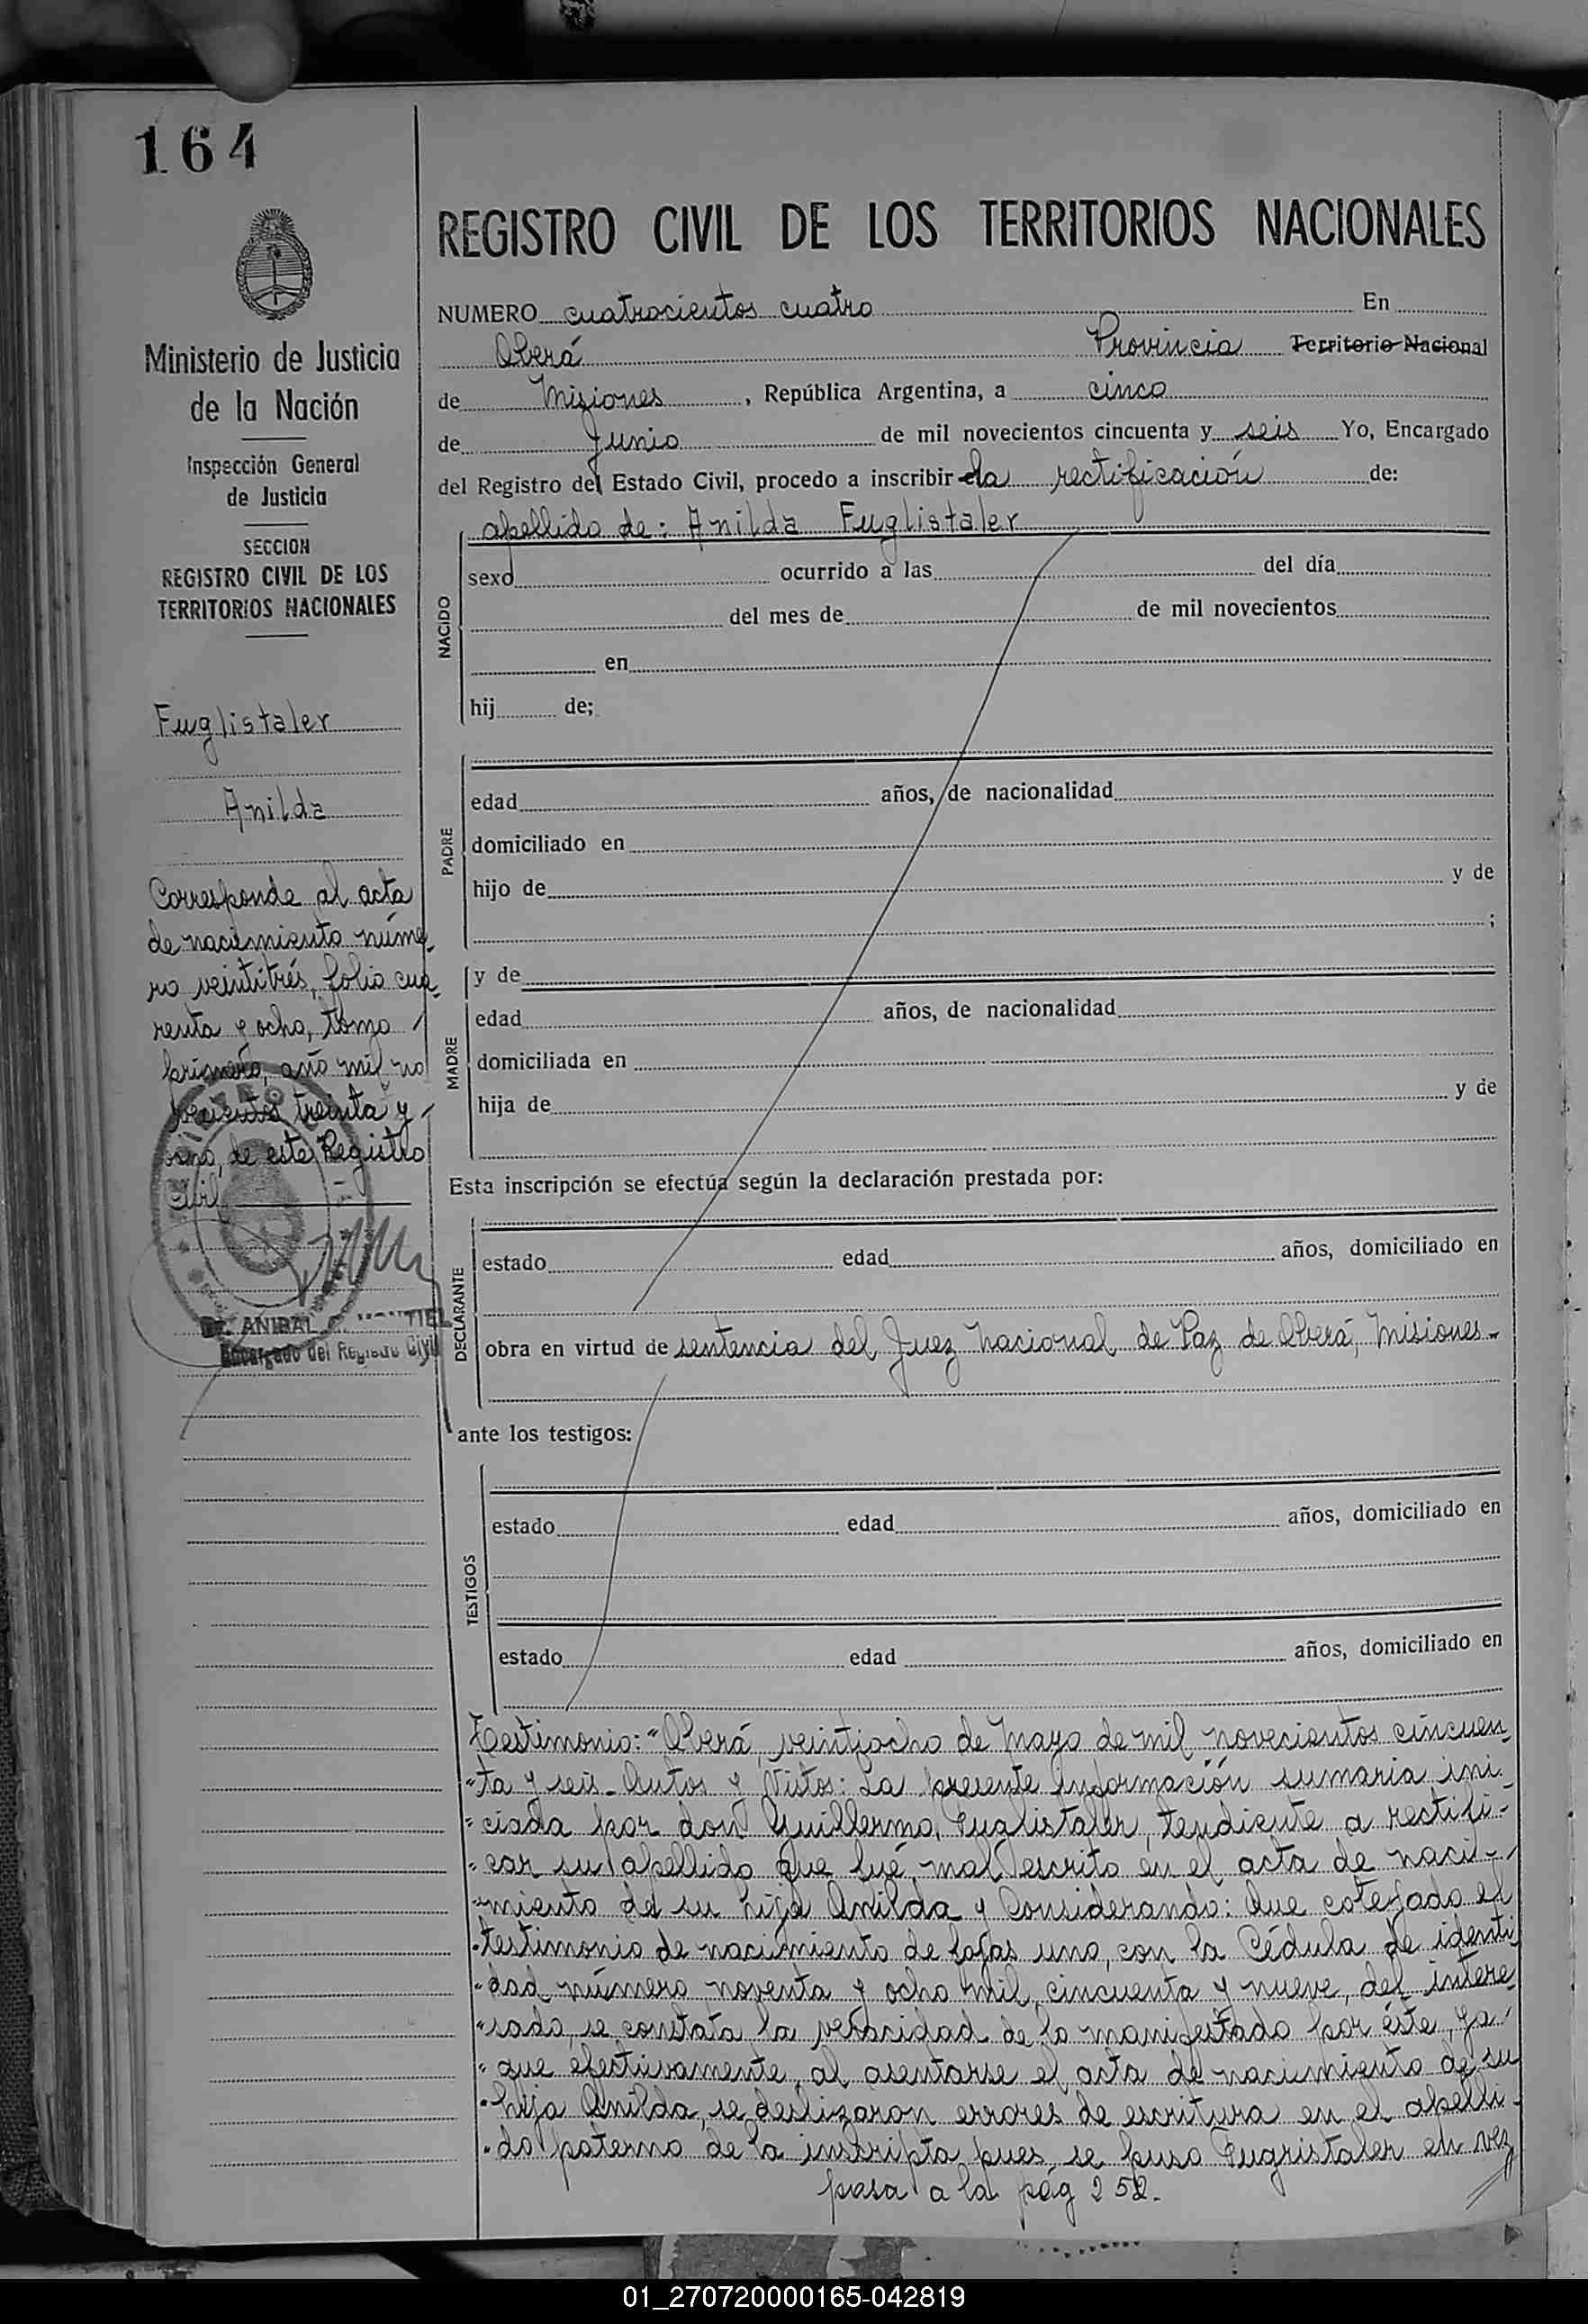 164
Ministerio de Justicia
de la Nación
Inspección General
de Justicia
SECCION
REGISTRO CIVIL DE LOS
TERRITORIOS NACIONALES
Fuglistaler
Anilda
Corresponde al acta
de nacimiento núme-
ro veintitrés, folio cua-
renta y ocho, tomo
primero, año mil no
vecientos treinta y
de este Registro
Civil
Dr. ANIBAL MONTIEL
Encargado del Registro Civil
REGISTRO CIVIL DE LOS TERRITORIOS NACIONALES
NUMERO cuatrocientos cuatro En
Oberá Provincia Territorio Nacional
de Misiones, República Argentina, a cinco
de Junio de mil novecientos cincuenta y seis Yo, Encargado
del Registro del Estado Civil, procedo a inscribir la rectificación de:
apellido de: Anilda Fuglistaler
NACIDO
sexo ocurrido a las del día
del mes de de mil novecientos
en
hij de;
PADRE
edad años, de nacionalidad
domiciliado en
hijo de y de
;
MADRE
y de
edad años, de nacionalidad
domiciliada en
hija de y de
Esta inscripción se efectúa según la declaración prestada por:
DECLARANTE
estado edad años, domiciliado en
obra en virtud de sentencia del Juez Nacional de Paz de Oberá, Misiones-
ante los testigos:
TESTIGOS
estado edad años, domiciliado en
estado edad años, domiciliado en
Testimonio: "Oberá, veintiocho de Mayo de mil novecientos cincuen
"ta y seis. Autos y Vistos: La presente información sumaria ini-
"ciada por don Guillermo Fuglistaler, tendiente a rectifi-
"car su apellido que fué mal escrito en el acta de naci-
"miento de su hija Anilda y Considerando: Que cotejado el
"testimonio de nacimiento de fojas uno, con la Cédula de identi
"dad número noventa y ocho mil cincuenta y nueve, del intere
"sado, se constata la veracidad de lo manifestado por éste, ya
"que efectivamente, al asentarse el acta de nacimiento de su
"hija Anilda, se deslizaron errores de escritura en el apelli-
"do paterno de la inscripta pues, se puso Fugristaler en vez
pasa a la pág 252.
01_270720000165-042819